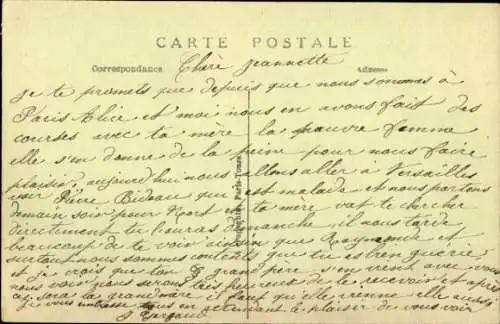 CARTE POSTALE
Correspondance
Adresse
Chère Jeannette
je te promets que depuis que nous sommes à
Paris Alice et moi nous en avons fait des
courses avec ta mère la pauvre femme
elle s'en donne de la peine pour nous faire
plaisir, aujourd'hui nous allons aller à Versailles
voir Pierre Bideau qui est malade et nous partons
demain soir pour ta mère va te chercher
directement tu nous dimanche, il nous tarde
beaucoup de te voir ainsi que Raymonde et
surtout nous sommes contents que tu es bien guérie,
et je crois que ton grand père s'en vient avec vous
nous voir nous serons très heureux de le recevoir et après
ça sera la grand'mère il faut qu'elle vienne elle aussi
je vous embrasse tous en attendant le plaisir de vous voir
Paris-Tours